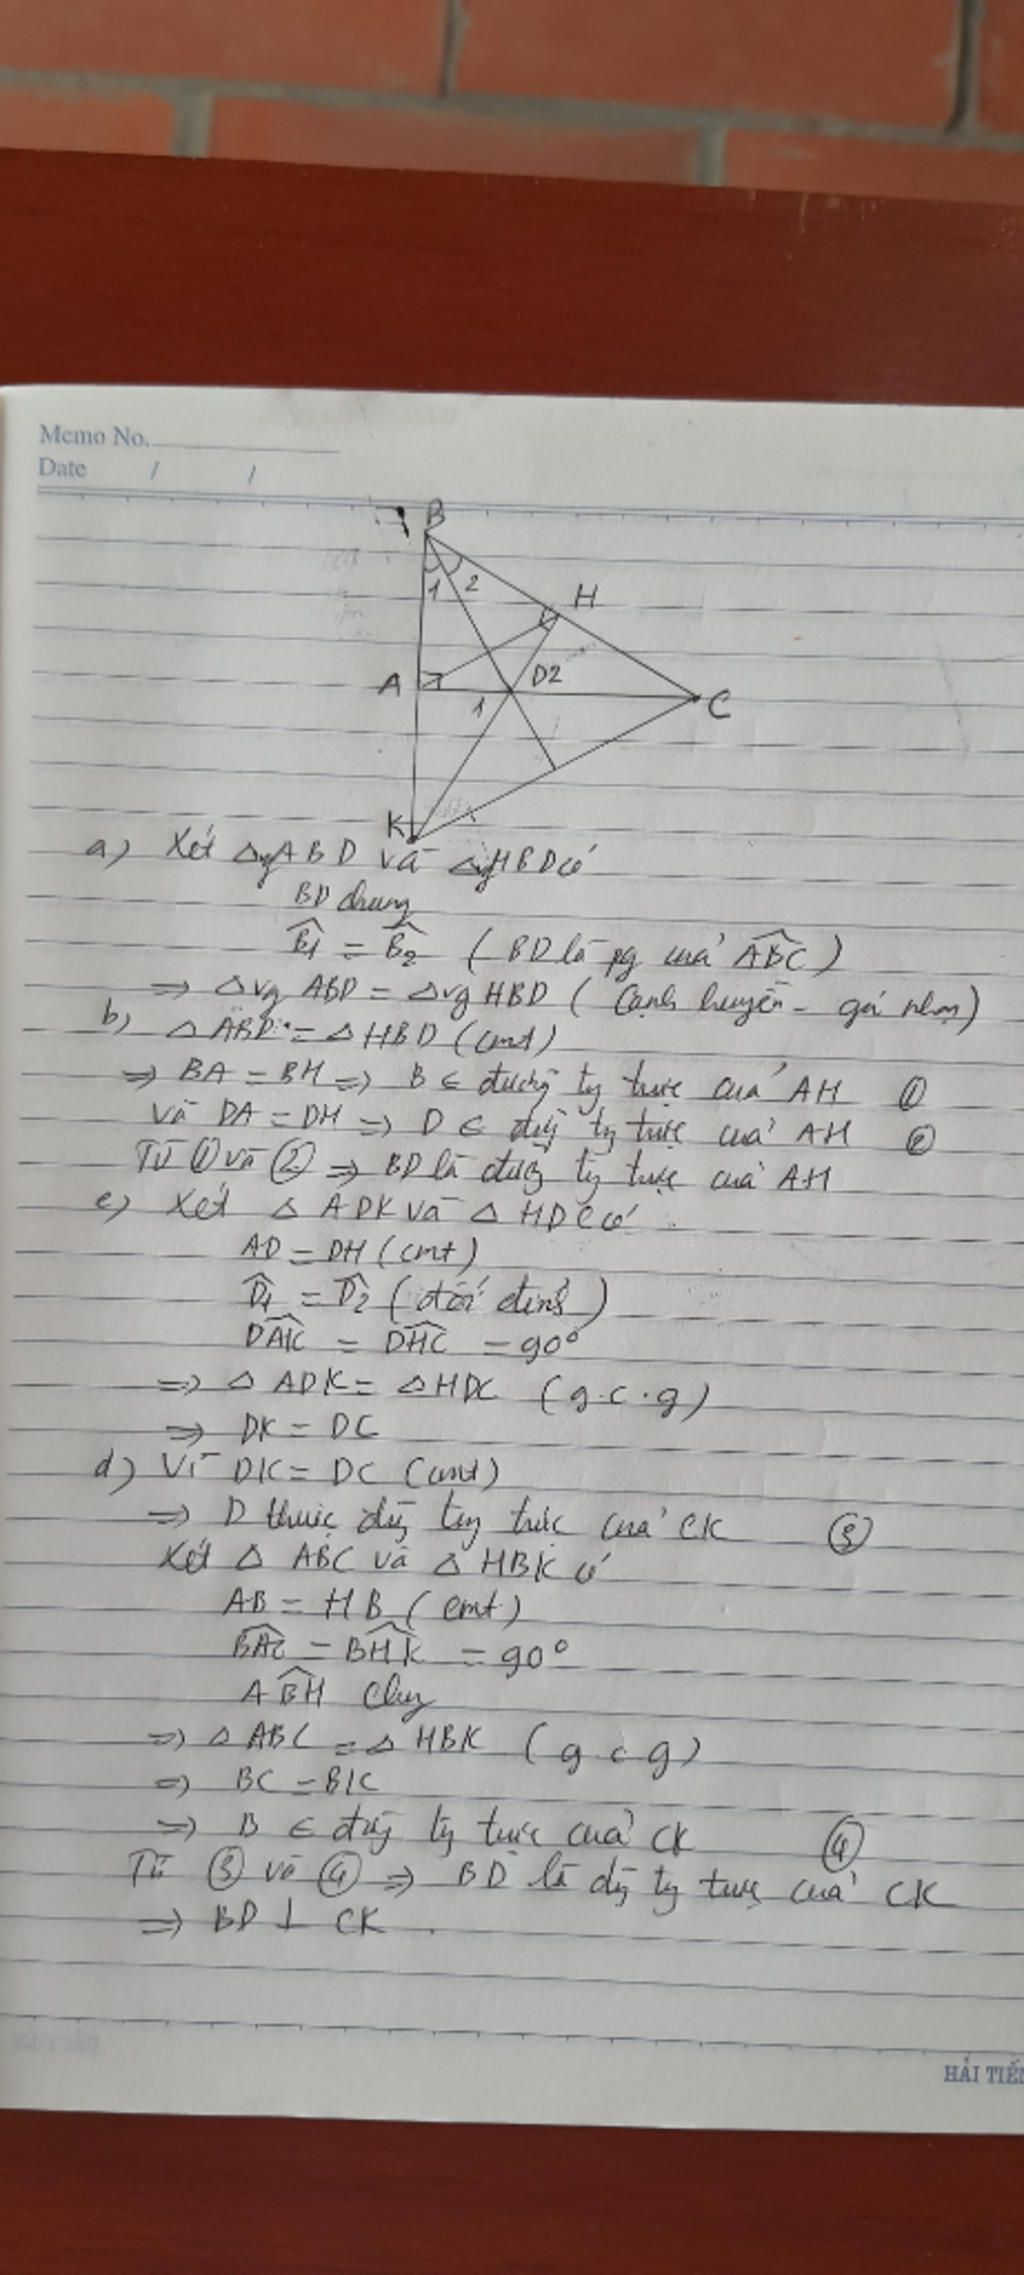 Memo No.
Date / /
B
1 2
H
A
D2
1
C
K
a) Xét ΔvgABD và ΔvgHBD có
BD chung
B̂1 = B̂2 ( BD là pg của ABĈ )
=> Δvg ABD = Δvg HBD ( Cạnh huyền - góc nhọn)
b) Δ ABD = Δ HBD (cmt)
=> BA = BH => B ∈ đường tg trực của AH ①
và DA = DH => D ∈ đg tg trực của AH ②
Từ ① và ② => BD là đường tg trực của AH
c) Xét Δ ADK và Δ HDC có
AD = DH (cmt)
D̂1 = D̂2 ( đối đỉnh )
DAK̂ = DHĈ = 90°
=> Δ ADK = Δ HDC (g.c.g)
=> DK = DC
d) Vì DK = DC (cmt)
=> D thuộc đg tg trực của CK ③
Xét Δ ABC và Δ HBK có
AB = HB ( cmt)
BAĈ = BHK̂ = 90°
ABĤ chung
=> Δ ABC = Δ HBK ( g c g)
=> BC = BK
=> B ∈ đg tg trực của CK ④
Từ ③ và ④ => BD là đg tg trực của CK
=> BD ⊥ CK .
HẢI TIẾN